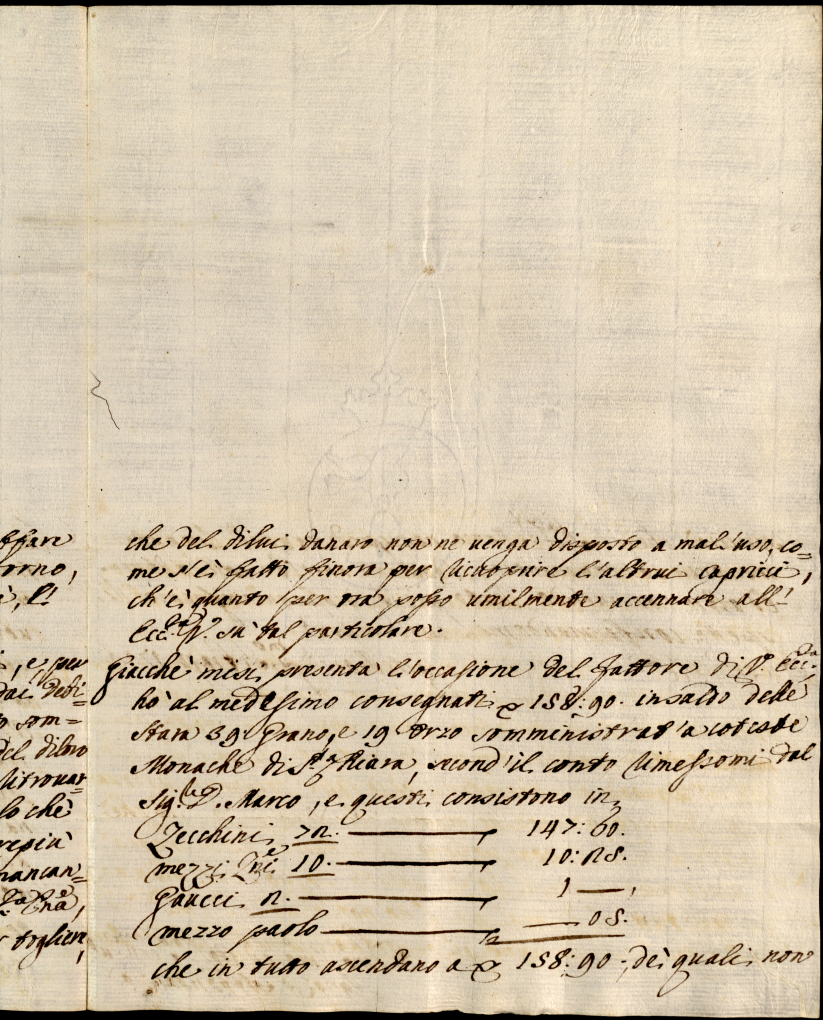 ffare
orno,
è, l'
, e per
dai dedi=
o som=
del diloro
ritrovar=
lo chè
repiù
mancan=
toglieri,
che del dilui danaro non ne venga disposto a mal'uso, co=
me s'è fatto finora per ricuoprire l'altrui capricci,
ch'è quanto per ora posso umilmente accennare all'
Ecc. V. sù tal particolare.
Giacchè mi si presenta l'occasione del Fattore di V. Ecc.
hò al medesimo consegnati 158:90. in saldo delle
Stara 39 Grano, e 19 Orzo somministrat'a coteste
Monache di S. Chiara, second'il conto rimessomi dal
Sig. D. Marco, e questi consistono in
Zecchini 72. — 147:60.
mezzi Zni 10. — 10:25.
Gaucci 2. — 1 —,
mezzo paolo — 05.
che in tutto ascendano a 158:90. dei quali non